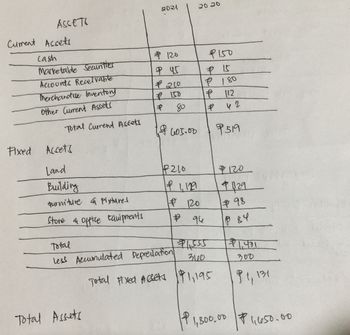 2021 2020
ASSETS
Current Assets
Cash ₱ 120 ₱150
Marketable Securities ₱ 45 ₱ 15
Accounts Receivable ₱ 210 ₱ 180
Merchandise Inventory ₱ 150 ₱ 112
Other Current Assets ₱ 80 ₱ 62
Total Current Assets ₱ 605.00 ₱519
Fixed Assets
Land ₱210 ₱120
Building ₱ 1,129
Furniture & Fixtures ₱ 120 ₱ 98
Store & Office Equipments ₱ 96 ₱ 84
Total ₱1,555 ₱1,431
Less Accumulated Depreciation 360 300
Total Fixed Assets ₱1,195 ₱1,131
Total Assets ₱1,800.00 ₱1,650.00